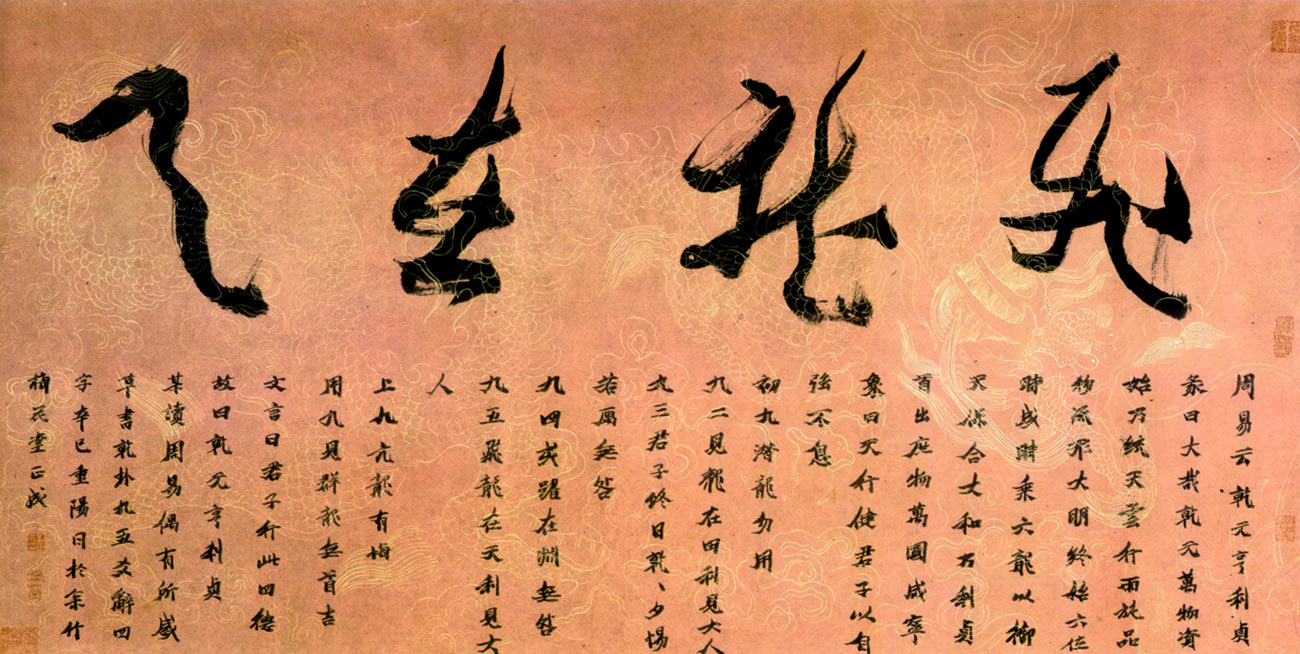 飛龍在天
周易云乾元亨利貞
彖曰大哉乾元萬物資
始乃統天雲行雨施品
物流形大明終始六位
時成時乘六龍以御
天保合大和乃利貞
首出庶物萬國咸寧
象曰天行健君子以自
強不息
初九潛龍勿用
九二見龍在田利見大人
九三君子終日乾、夕惕
若厲無咎
九四或躍在淵無咎
九五飛龍在天利見大
人
上九亢龍有悔
用九見群龍無首吉
文言曰君子行此四德
故曰乾元亨利貞
某讀周易偶有所感
草書乾卦九五爻辭四
字辛巳重陽日於松竹
梅花堂正成